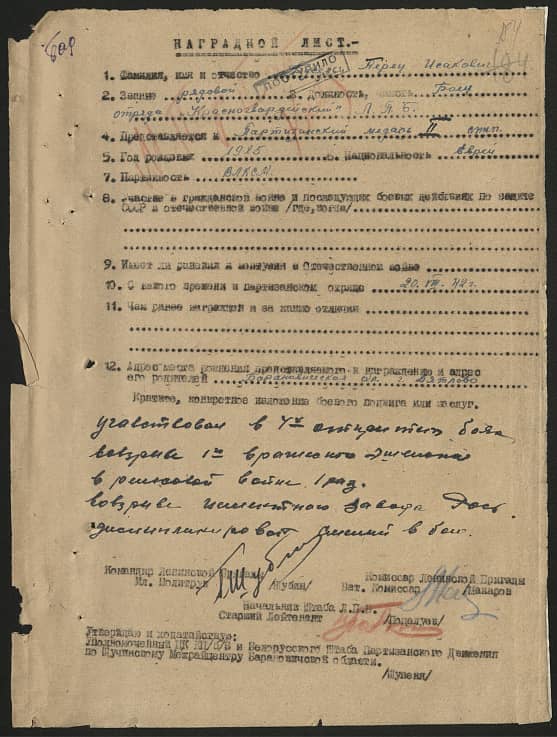 НАГРАДНОЙ ЛИСТ.-
1. Фамилия, имя и отчество Перец Исакович
2. Звание рядовой 3. Должность, часть Боец
отряда "Красногвардейский" Л.П.Б.
4. Представляется к Партизанский медаль II степ.
5. Год рождения 1925 6. Национальность Еврей
7. Партийность ВЛКСМ
8. Участие в гражданской войне и последующих боевых действиях по защите
СССР в отечественной войне /где, когда/
9. Имеет ли ранения и контузии в Отечественной войне
10. С какого времени в партизанском отряде 20.VIII.42г.
11. Чем ранее награжден и за какие отличия
12. Адрес места жительства представляемого к награждению и адрес
его родителей Барановичская обл. г. Дятлово
Краткое, конкретное изложение боевого подвига или заслуг.
участвовал в 4х открытых боях
взрыве 1го вражеского эшелона
в рельсовой войне 1 раз.
взрыве цементного завода Рось.
дисциплинирован смелый в бою.
Командир Ленинской Бригады
Мл. Политрук /Шубин/
Комиссар Ленинской Бригады
Бат. Комиссар
Начальник Штаба Л.П.Б.
Старший Лейтенант
Утверждаю и ходатайствую:
Уполномоченный ЦК КП/б/Б и Белорусского Штаба Партизанского Движения
по Щучинскому Межрайцентру Барановичской области.
/Шупеня/